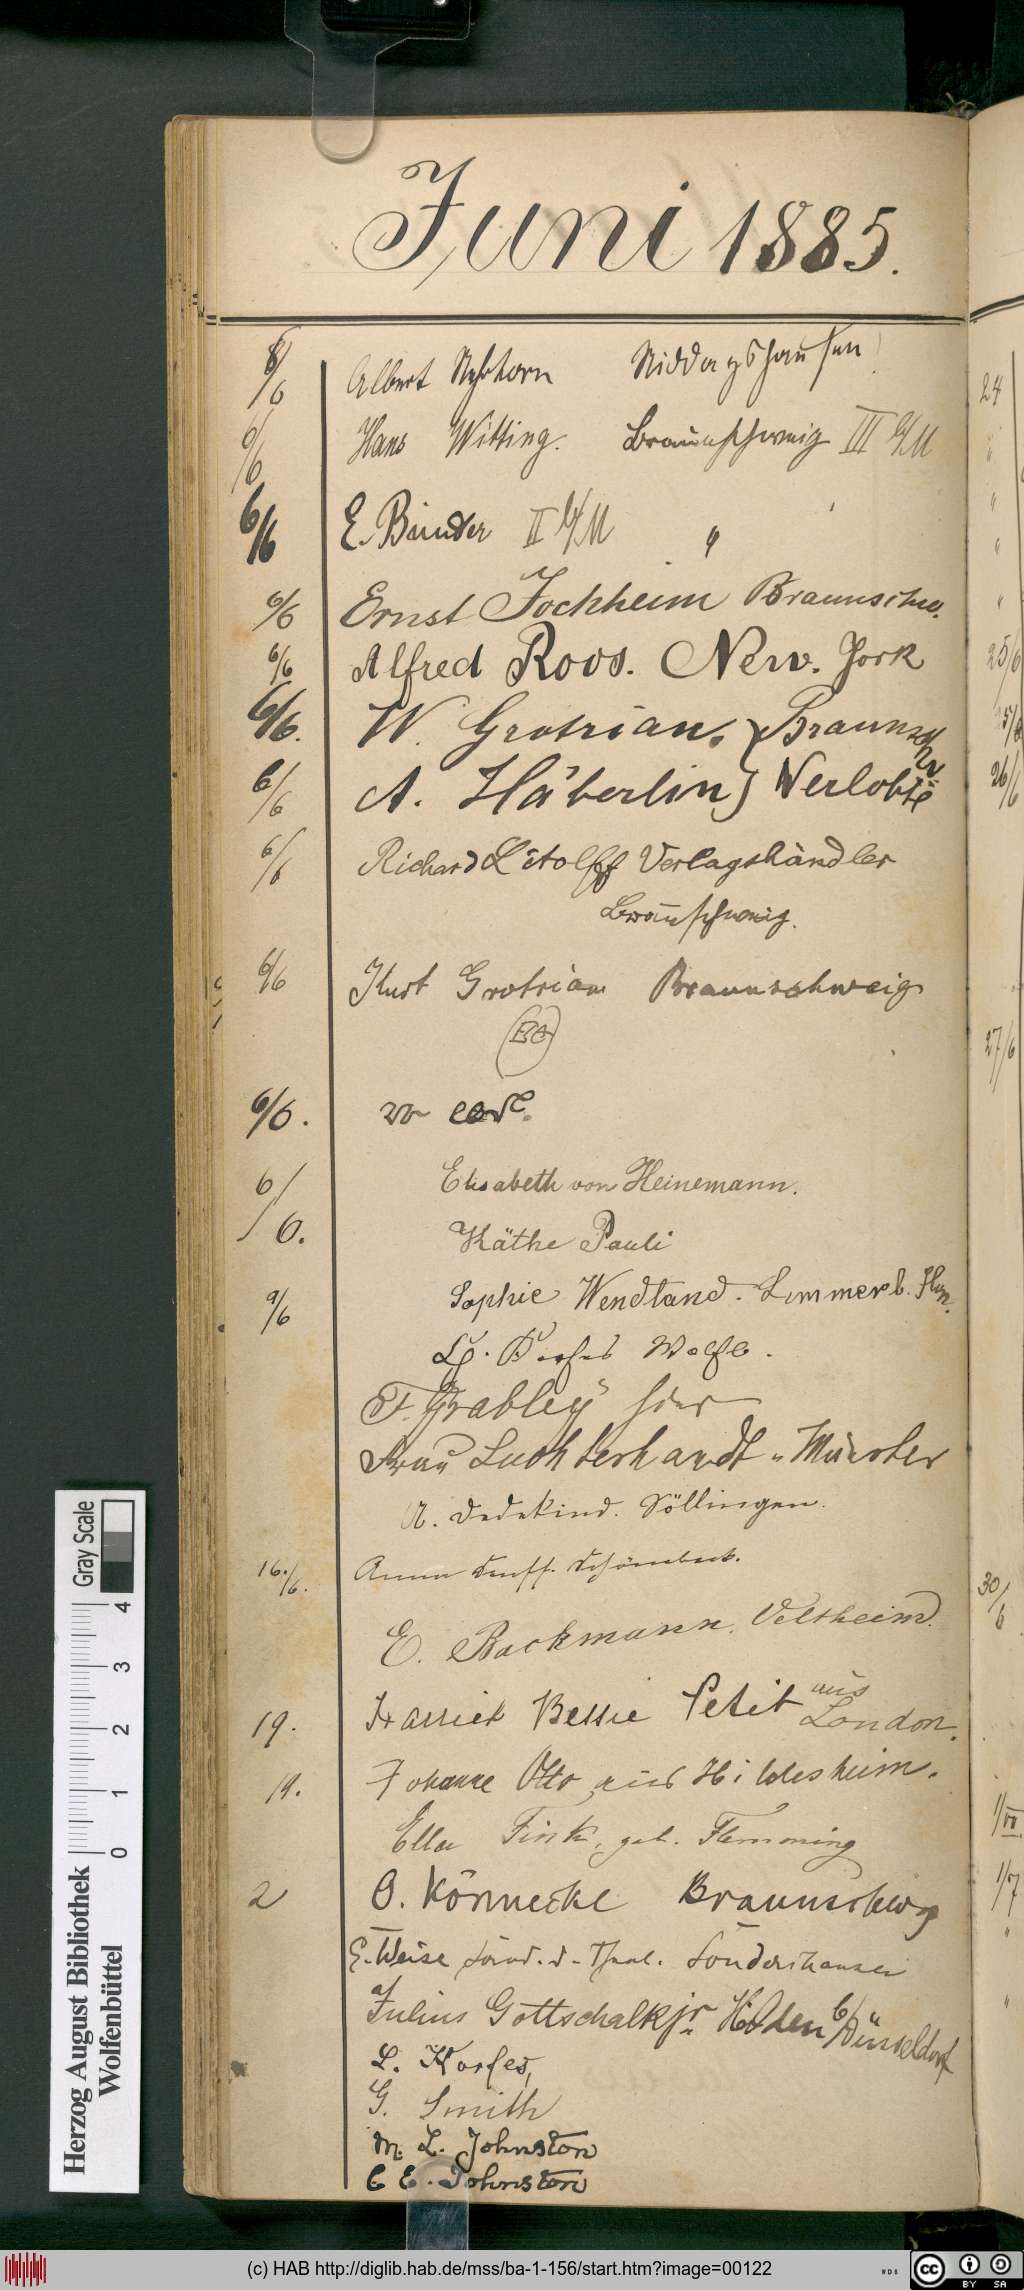 Juni 1885.
8/6 Albert Nehrkorn Riddagshausen
6/6 Hans Witting. Braunschweig III G/M
6/6 E. Binder II G/M "
6/6 Ernst Jochheim Braunschw.
6/6 Alfred Roos. New. York
6/6. W. Grotrian. } Braunschw.
6/6 A. Häberlin } Verlobte
6/6 Richard Litolff Verlagshändler
Braunschweig.
6/6 Kurt Grotrian Braunschweig
6/6.
6/6. Elisabeth von Heinemann.
Käthe Pauli
9/6 Sophie Wendland. Limmer b. Han.
Wolfb.
F. Grabley hier
Frau Luchterhandt " Münster
A. Dedekind. Söllingen.
16./6. Anna
E. Backmann. Veltheim.
19. Harriet Bessie Petit aus London.
19. Johanne Otto aus Hildesheim.
Ella Fink, geb. Flemming
2 O. Könnecke Braunschwg
E. Weise Sondershausen
Julius Gottschalk jr. Hilden b/Düsseldorf
L. Korfes,
G. Smith
M. L. Johnston
C E. Johnston
24
25/6
25/6
26/6
27/6
30/6
1/VII
1/7
Herzog August Bibliothek
Wolfenbüttel
0 1 2 3 4
Gray Scale
(c) HAB http://diglib.hab.de/mss/ba-1-156/start.htm?image=00122
WDB
cc BY SA